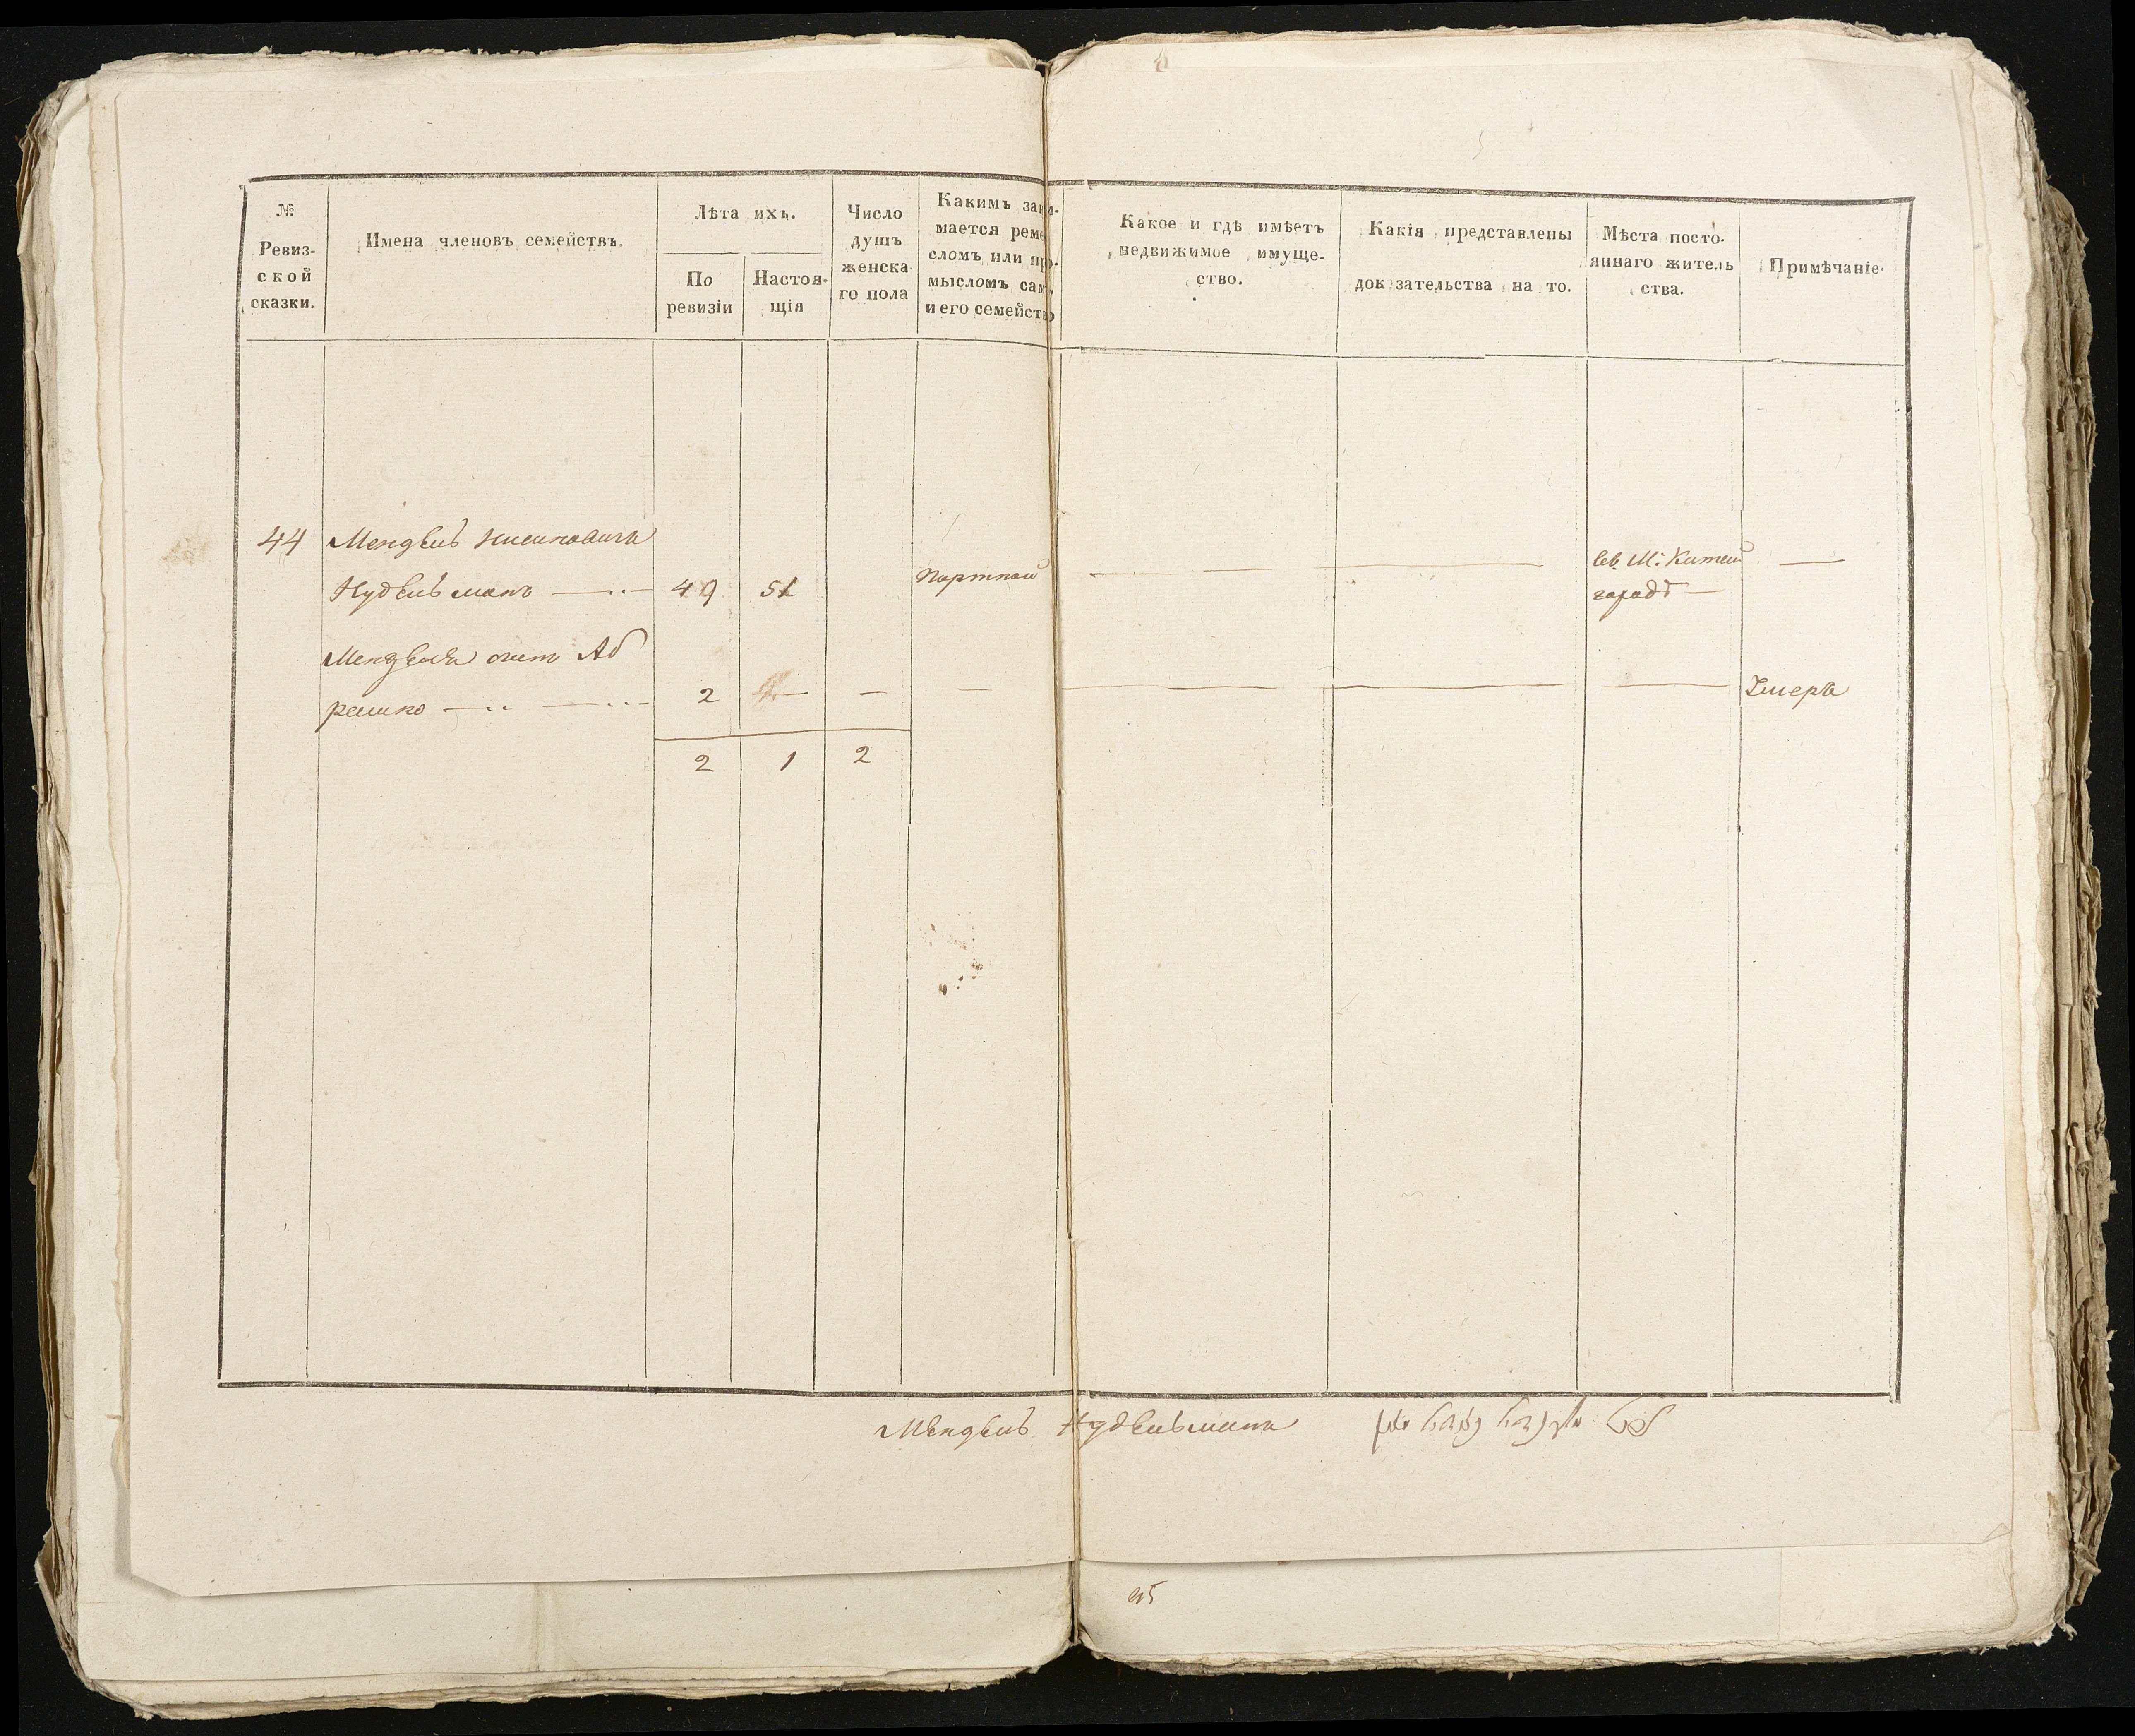 №
Ревиз-
ской
сказки.
Имена членовъ семействъ.
Лѣта ихъ.
По
ревизіи
Настоя-
щія
Число
душъ
женска
го пола
Какимъ зани-
мается реме
сломъ или про-
мысломъ самъ
и его семейство
Какое и гдѣ имѣетъ
недвижимое имуще-
ство.
Какія представлены
доказательства на то.
Мѣста посто-
яннаго житель
ства.
Примѣчаніе.
44 Мендель
Нудельманъ 49 51 Портной М: Китай
городѣ
Менделя сынъ Аб
рамко 2 — — — Умеръ
2 1 2
Мендель Нудельманъ